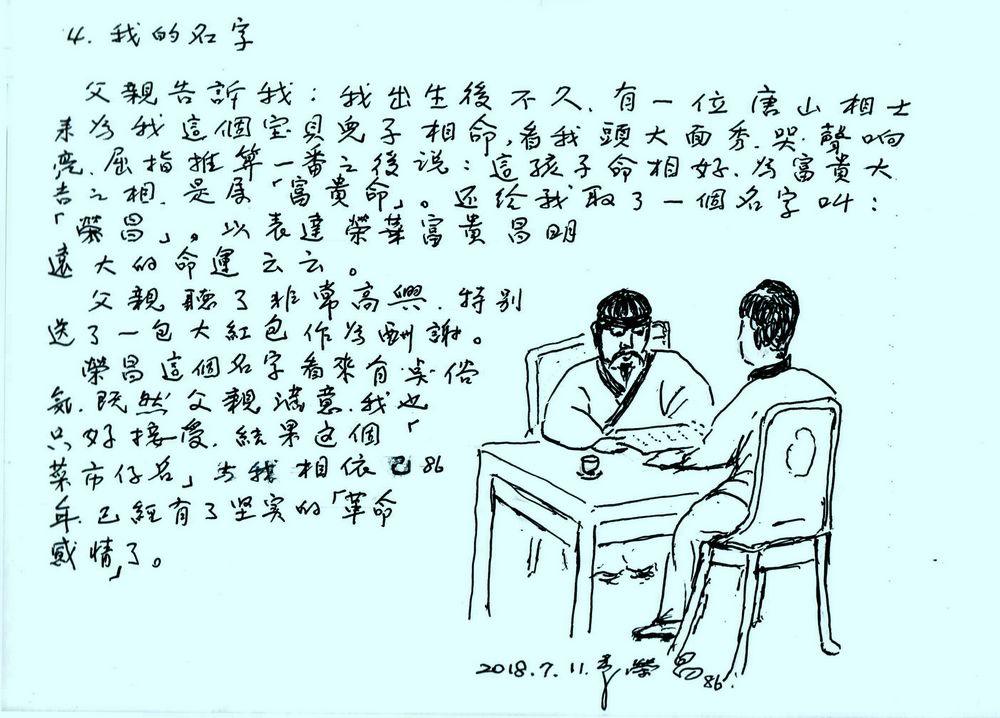 4. 我的名字
父親告訴我：我出生後不久、有一位唐山相士
来為我這個宝貝兒子相命，看我頭大面秀、哭聲响
亮、屈指推算一番之後说：這孩子命相好、為富貴大
吉之相、是属「富貴命」。还给我取了一個名字叫：
「榮昌」。以表達榮華富貴昌明
遠大的命運云云。
父親聽了非常高興、特别
送了一包大紅包作為酬謝。
榮昌這個名字看來有点俗
氣、既然父親满意、我也
只好接受、結果这個「
菜市仔名」与我相依已86
年、已經有了坚实的「革命
感情」了。
2018.7.11. 榮昌 86.